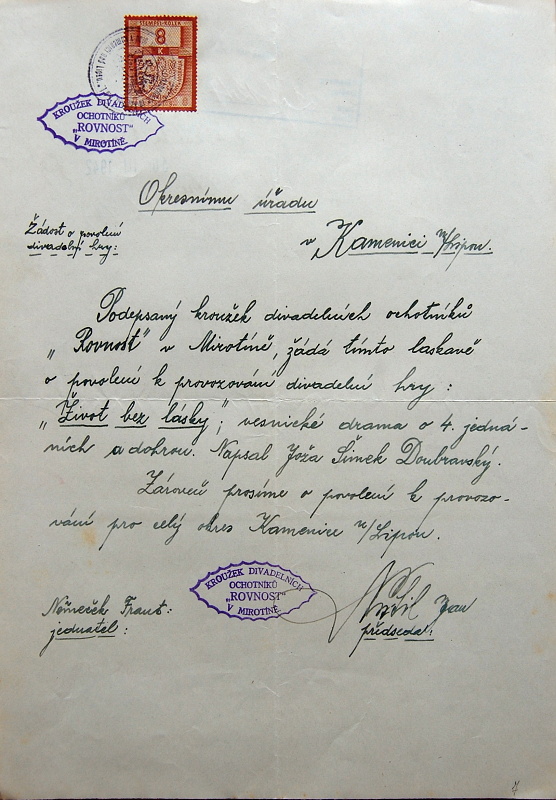 STEMPEL-KOLEK
8
K
KROUŽEK DIVADELNÍCH
OCHOTNÍKŮ
„ROVNOST"
V MIROTÍNĚ.
Okresnímu úřadu
Žádost o povolení
divadelní hry:
v Kamenici n/Lipou.
Podepsaný kroužek divadelních ochotníků
„Rovnost" v Mirotíně, žádá tímto laskavě
o povolení k provozování divadelní hry:
„Život bez lásky"; vesnické drama o 4. jedná-
ních a dohrou. Napsal Joža Šimek Doubravský.
Zároveň prosíme o povolení k provozo-
vání pro celý okres Kamenice n/Lipou.
KROUŽEK DIVADELNÍCH
OCHOTNÍKŮ
„ROVNOST"
V MIROTÍNĚ.
Němeček Frant:
jednatel:
Jan
předseda: